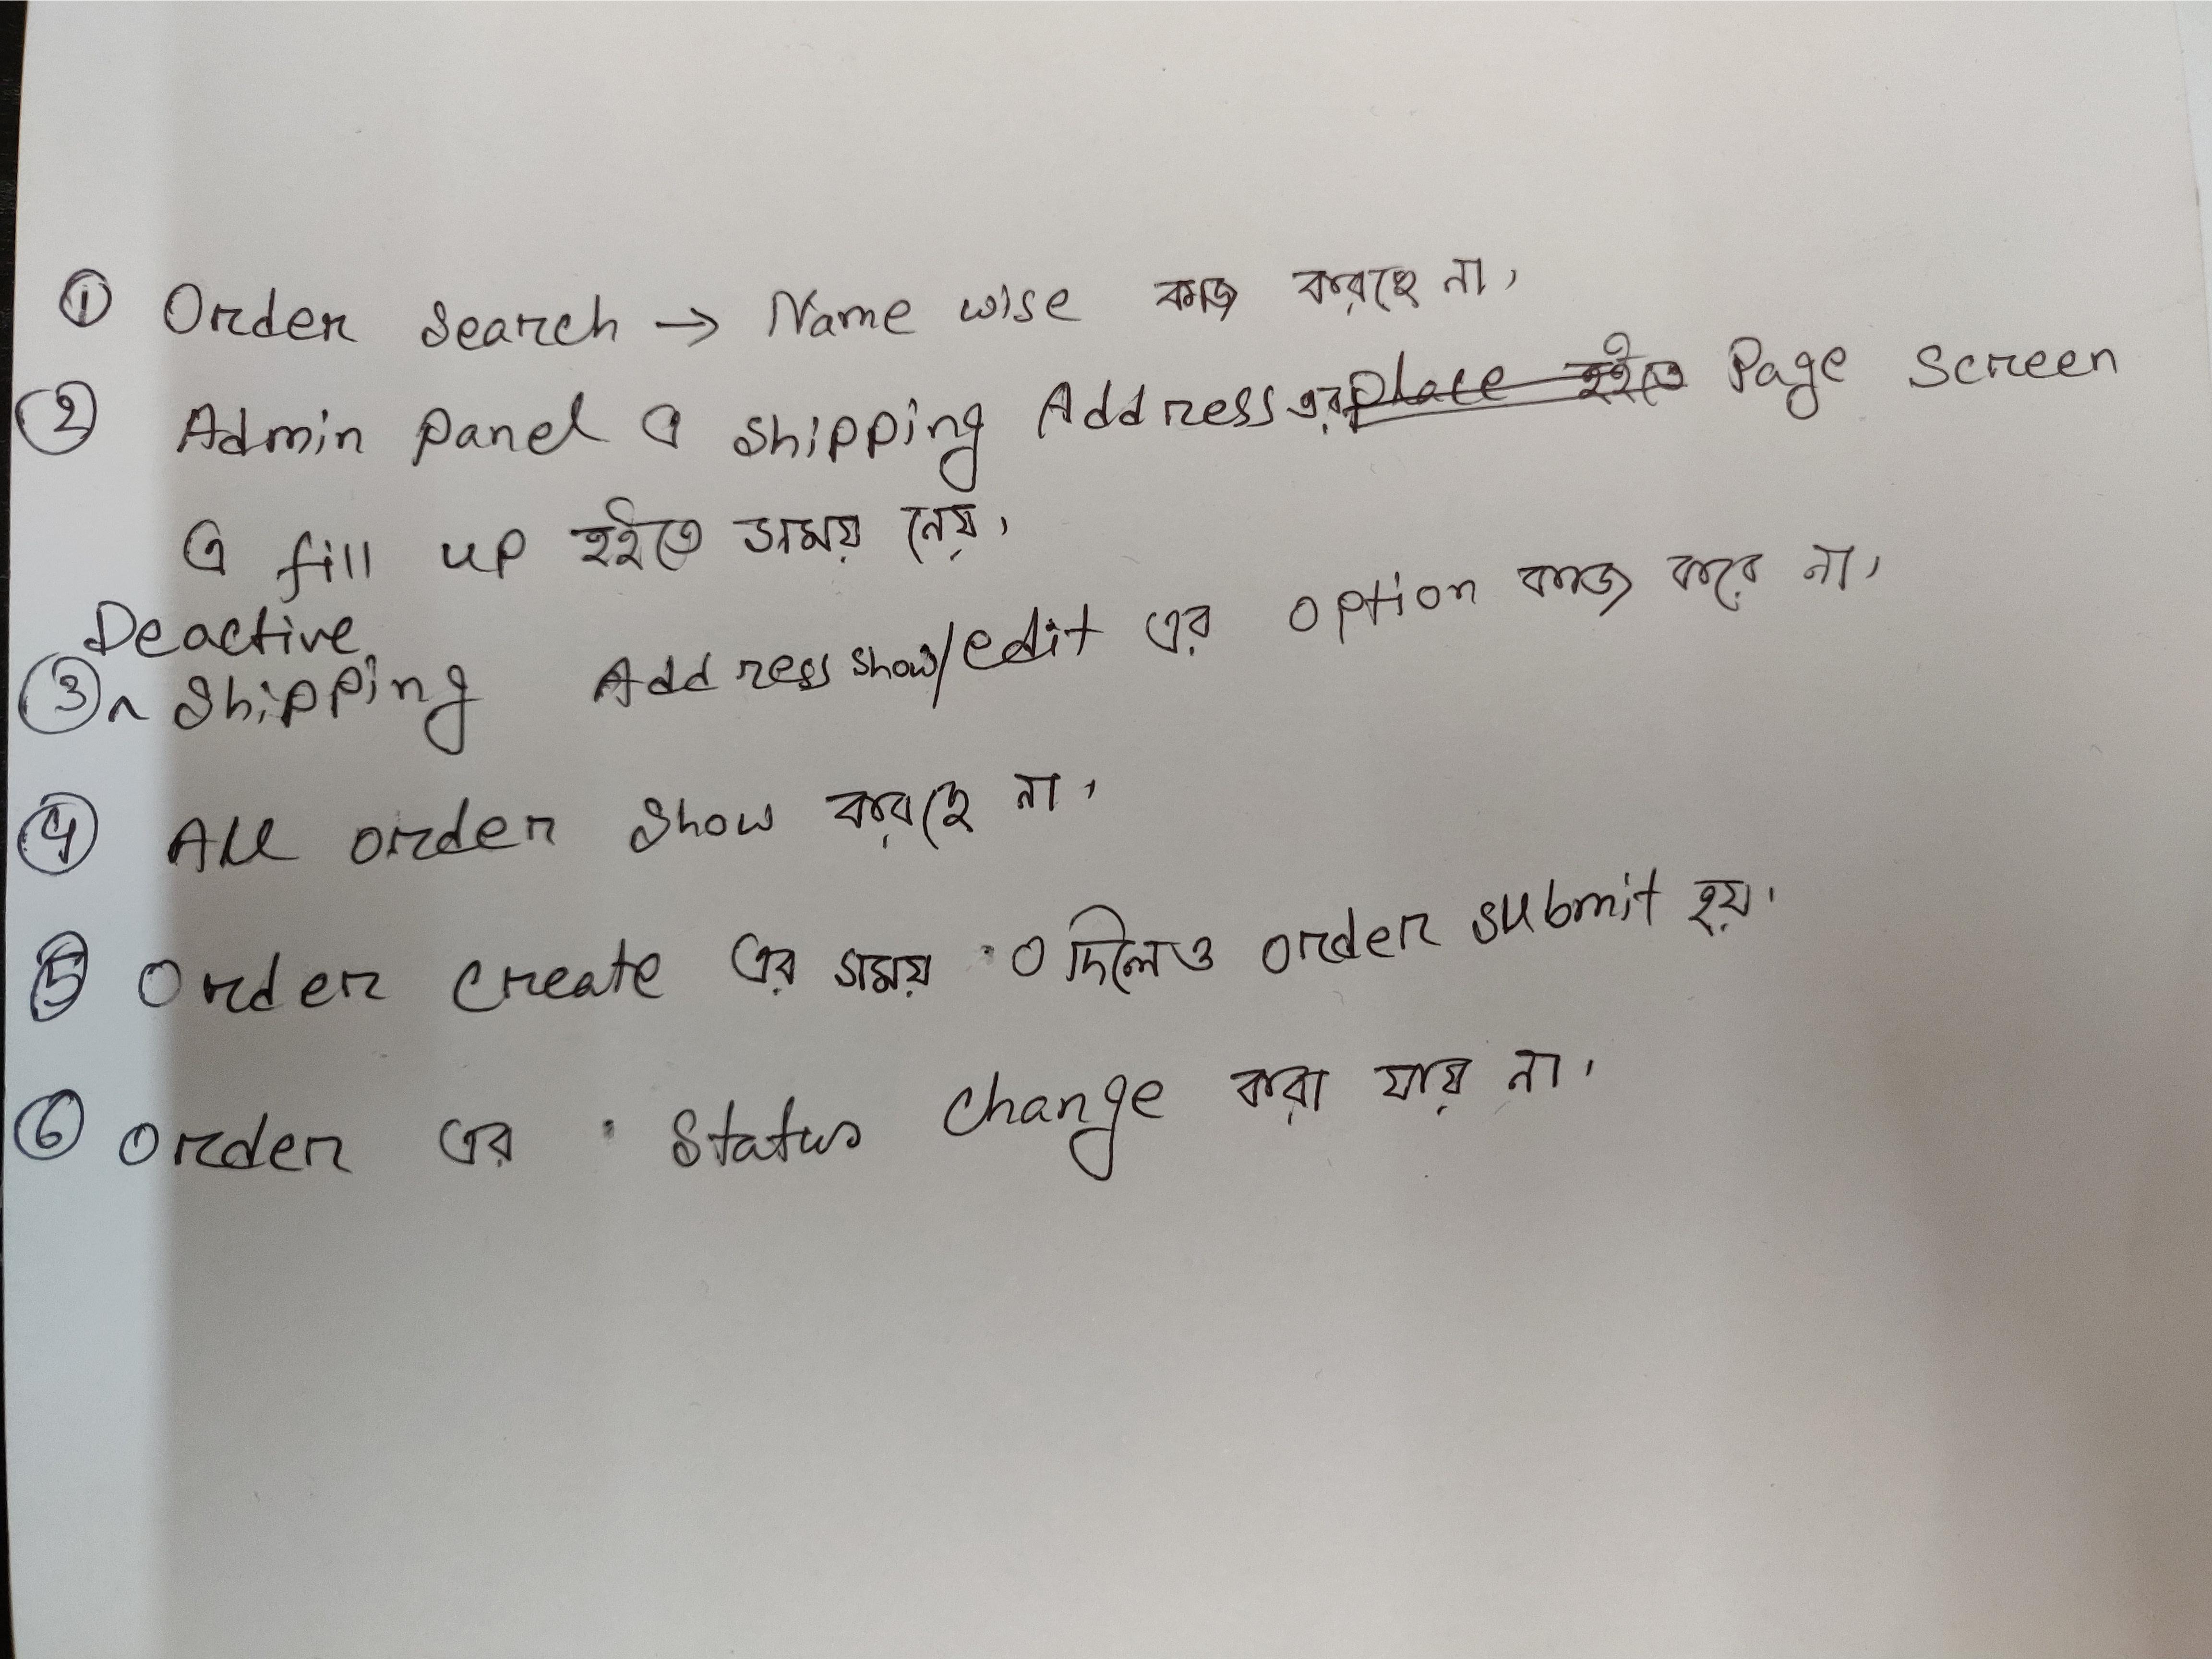 ① Order search → Name wise কাজ করছে না,
② Admin panel এ shipping Address এর Page screen
এ fill up হইতে সময় নেয়,
Deactive
③ ^ Shipping Address show/edit এর option কাজ করে না,
④ All order show করছে না,
⑤ Order create এর সময় 0 দিলেও order submit হয়,
⑥ Order এর status change করা যায় না,